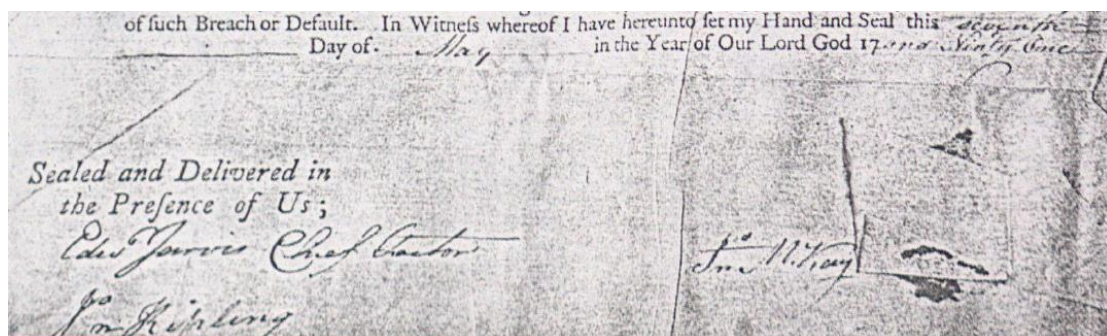 of ſuch Breach or Default. In Witneſs whereof I have hereunto ſet my Hand and Seal this seventh
Day of May in the Year of Our Lord God 17 and Ninty One
Sealed and Delivered in
the Preſence of Us;
Edwd Jarvis Chief Factor
Jno McKay
Jno Kipling